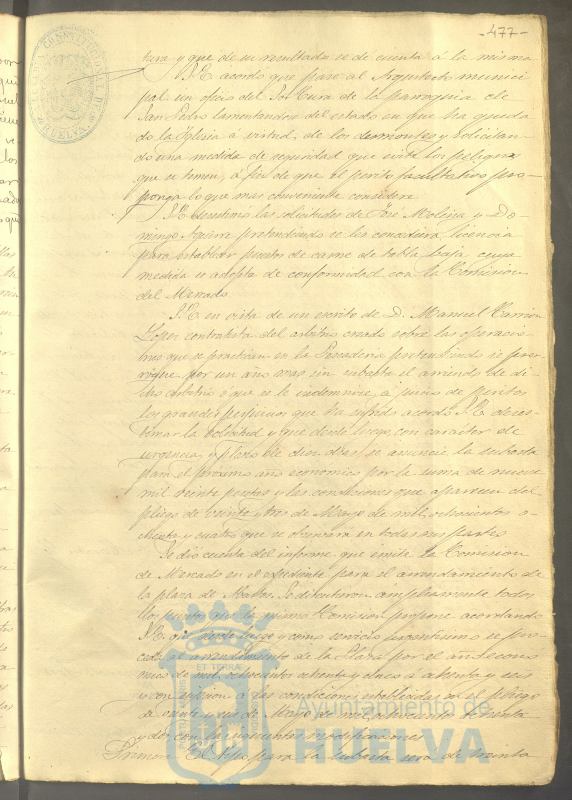 -477-
tura y que de su resultado se dé cuenta á la misma
S.E. acordó que pase al Arquitecto munici
pal un oficio del Sor Cura de la parroquia de
San Pedro lamentandose del estado en que ha queda
do la Iglesia á virtud de los desmontes y solicitan
do una medida de seguridad que evite los peligros
que se temen, á fin de que el perito facultativo pro
ponga lo que mas conveniente considere
S.E. desestimó las solicitudes de José Molina y Do
mingo pretendiendo se les concediera licencia
para establecer puestos de carne de tabla baja cuya
medida se adopta de conformidad con la Comision
del Mercado.
S.E. en vista de un escrito de D. Manuel Carrion
Lopez contratista del arbitrio creado sobre las operacio
nes que se practican en la Pescaderia pretendiendo se prorro
rogue por un año mas sin subasta el arriendo de di
cho arbitrio ó que se le indemnice, á juicio de peritos
los grandes perjuicios que ha sufrido acordó S.E. deses
timar la solicitud y que desde luego, con caracter de
urgencia y plazo de diez dias se anuncie la subasta
para el próximo año economico por la suma de nueve
mil veinte pesetas y las condiciones que aparecen del
pliego de veinte y tres de Mayo de mil ochocientos o-
chenta y cuatro que se observará en todas sus partes
Se dió cuenta del informe que emite la Comision
de Mercado en el expediente para el arrendamiento de
la plaza de Abastos. Se discutieron ampliamente todos
los puntos que la misma Comision propone acordando
S.E. que desde luego y como servicio perentorio se pro
ceda al arrendamiento de la Plaza por el año econo
mico de mil ochocientos ochenta y cinco á ochenta y seis
y con sujecion á las condiciones establecidas en el pliego
de veinte y seis de Mayo de mil ochocientos ochenta
y dos con las siguientes modificaciones
Primera El tipo para la subasta será de treinta
ET TERRAE
Ayuntamiento de
HUELVA